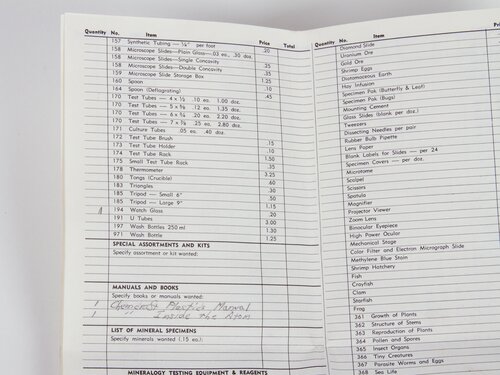 Quantity No. Item Price Total
157 Synthetic Tubing — ¼" per foot .20
158 Microscope Slides—Plain Glass—.03 ea., .30 doz.
158 Microscope Slides—Single Concavity .35
158 Microscope Slides—Double Concavity .35
159 Microscope Slide Storage Box .35
160 Spoon .10
164 Spoon (Deflagrating) .45
170 Test Tubes — 4 x ½ .10 ea. 1.00 doz.
170 Test Tubes — 5 x ⅝ .12 ea. 1.35 doz.
170 Test Tubes — 6 x ¾ .20 ea. 2.20 doz.
170 Test Tubes — 7 x ⅞ .25 ea. 2.80 doz.
171 Culture Tubes .05 ea. .40 doz.
172 Test Tube Brush .15
173 Test Tube Holder .10
174 Test Tube Rack 1.50
175 Small Test Tube Rack .35
178 Thermometer 3.25
180 Tongs (Crucible) .60
183 Triangles .30
185 Tripod — Small 6" .50
185 Tripod — Large 9" 1.15
194 Watch Glass .20
191 U Tubes 3.00
197 Wash Bottles 250 ml 1.30
971 Wash Bottle 1.25
SPECIAL ASSORTMENTS AND KITS
Specify assortment or kit wanted:
MANUALS AND BOOKS
Specify books or manuals wanted:
1 Chemcraft Plastics Manual
1 " Inside the Atom
LIST OF MINERAL SPECIMENS
Specify minerals wanted (.15 ea.):
MINERALOGY TESTING EQUIPMENT & REAGENTS
Quantity No. Item
Diamond Slide
Uranium Ore
Gold Ore
Shrimp Eggs
Diatomaceous Earth
Hay Infusion
Specimen Pak (Butterfly & Leaf)
Specimen Pak (Bugs)
Mounting Cement
Glass Slides (blank per doz.)
Tweezers
Dissecting Needles per pair
Rubber Bulb Pipette
Lens Paper
Blank Labels for Slides — per 24
Specimen Covers — per doz.
Microtome
Scalpel
Scissors
Spatula
Magnifier
Projector Viewer
Zoom Lens
Binocular Eyepiece
High Power Ocular
Mechanical Stage
Color Filter and Electron Micrograph Slide
Methylene Blue Stain
Shrimp Hatchery
Fish
Crayfish
Clam
Starfish
Frog
361 Growth of Plants
362 Structure of Stems
363 Reproduction of Plants
364 Pollen and Spores
365 Insect Organs
366 Tiny Creatures
367 Parasite Worms and Eggs
368 Sea Life